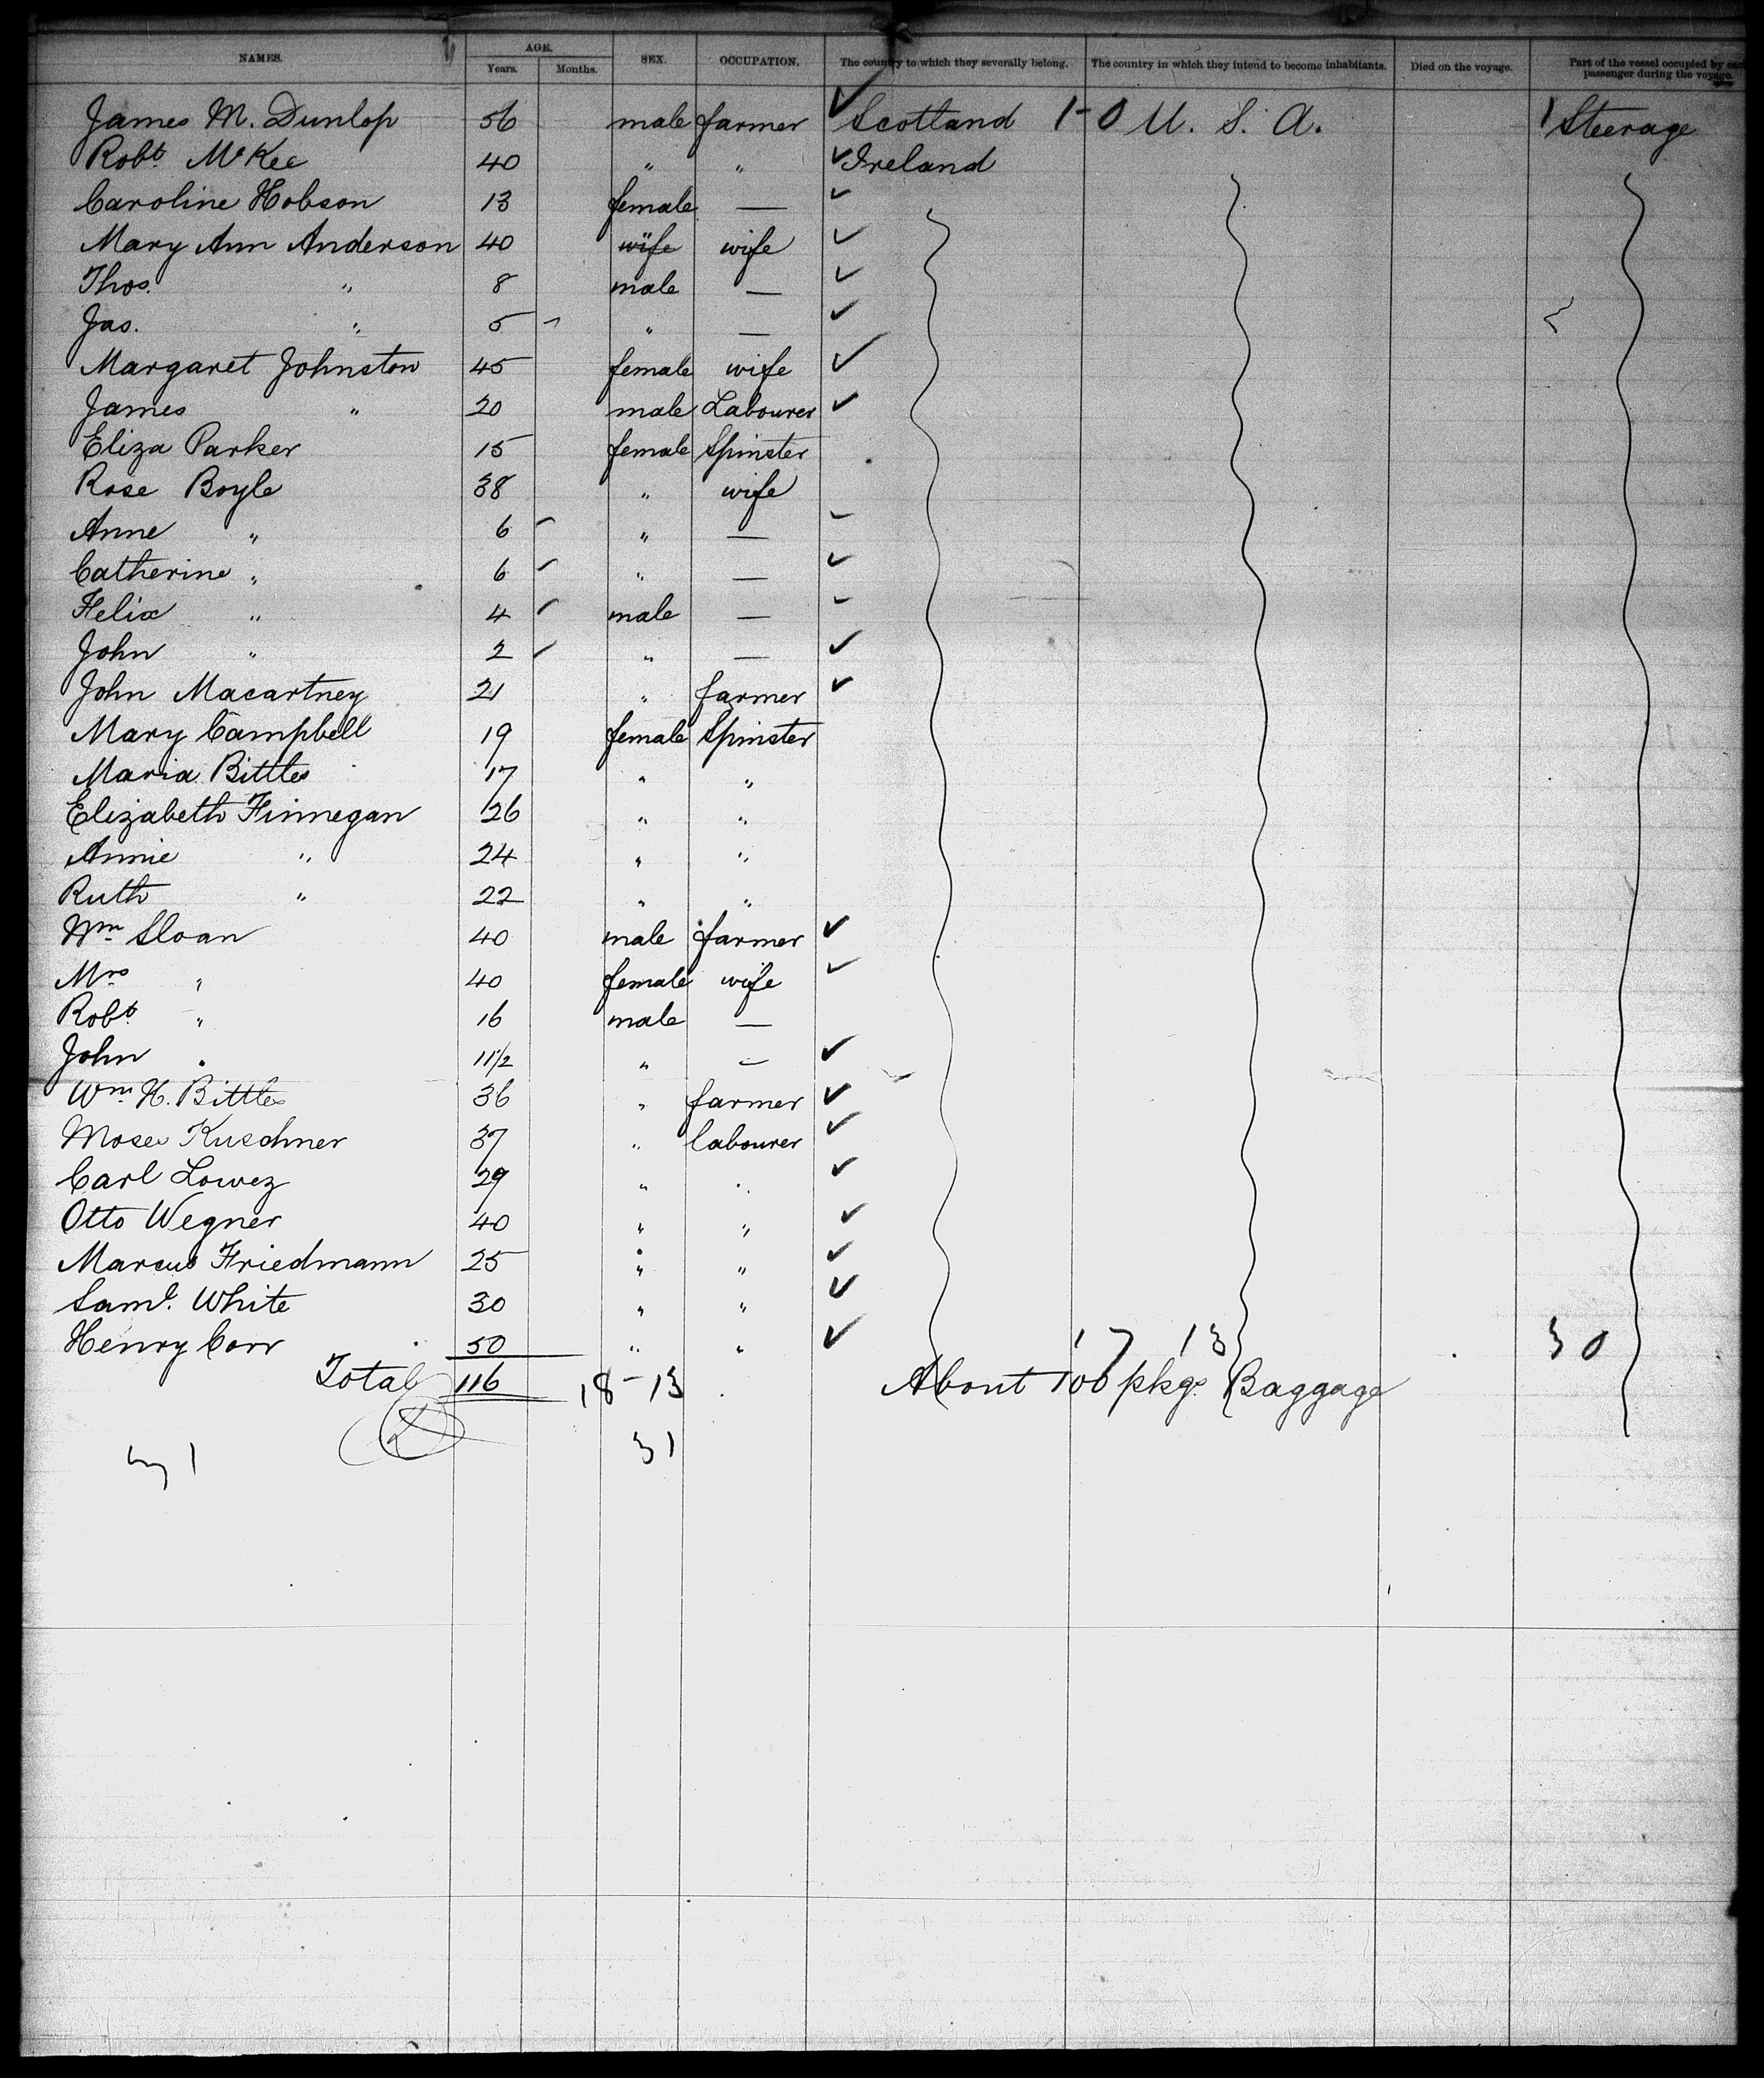 NAMES. AGE. SEX. OCCUPATION. The country to which they severally belong. The country in which they intend to become inhabitants. Died on the voyage. Part of the vessel occupied by each passenger during the voyage.
Years. Months.
James M. Dunlop 56 male farmer ✓ Scotland 1-0 U. S. A. 1 Steerage
Robt McKee 40 " " ✓ Ireland
Caroline Hobson 13 female — ✓
Mary Ann Anderson 40 wife wife ✓
Thos. " 8 male — ✓
Jas. " 5 " — ✓
Margaret Johnston 45 female wife ✓
James " 20 male Labourer ✓
Eliza Parker 15 female Spinster
Rose Boyle 38 " wife
Anne " 6 " —
Catherine " 6 " — ✓
Felix " 4 male —
John " 2 " — ✓
John Macartney 21 " farmer ✓
Mary Campbell 19 female Spinster
Maria Bittles 17 " "
Elizabeth Finnegan 26 " "
Annie " 24 " "
Ruth " 22 " "
Wm Sloan 40 male farmer ✓
Mrs " 40 female wife ✓
Robt " 16 male —
John " 11½ " — ✓
Wm. H. Bittles 36 " farmer ✓
Moses Kuschner 37 " labourer ✓
Carl Lowez 29 " " ✓
Otto Wegner 40 " " ✓
Marcus Friedmann 25 " " ✓
Saml. White 30 " " ✓
Henry Corr 50 " " ✓ 17 13 30
Total 116 18-13 About 100 pkgs Baggage
31